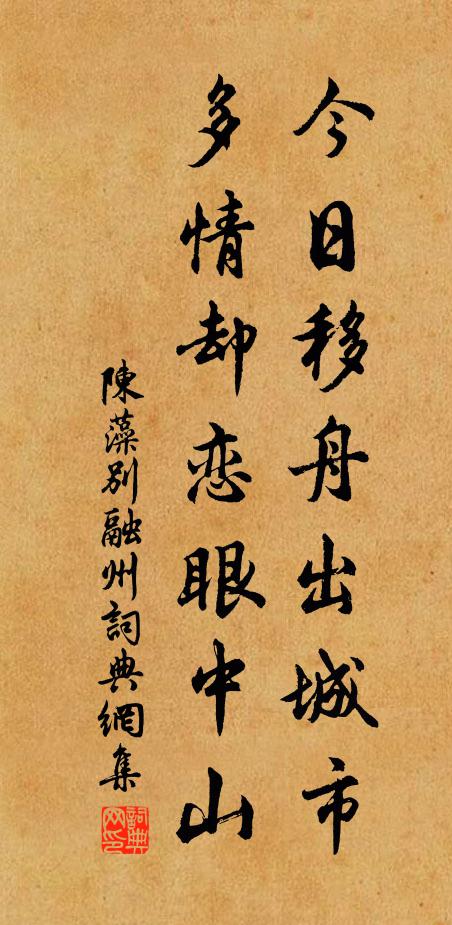 今日移舟出城市
多情却恋眼中山
陳藻别融州詞典網集
詞典网印